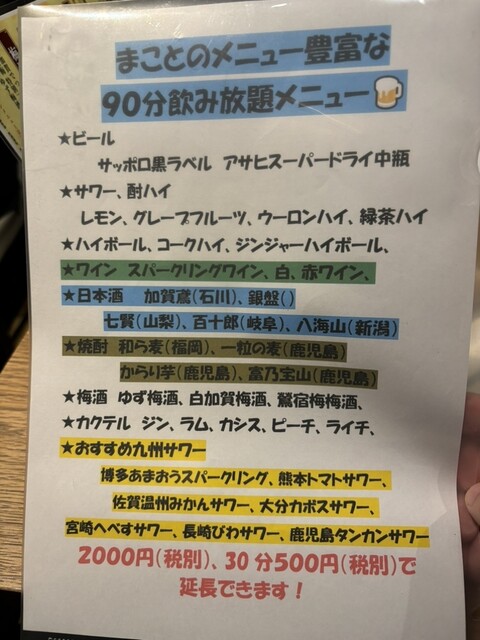 まことのメニュー豊富な
90分飲み放題メニュー
★ビール
サッポロ黒ラベル アサヒスーパードライ中瓶
★サワー、酎ハイ
レモン、グレープフルーツ、ウーロンハイ、緑茶ハイ
★ハイボール、コークハイ、ジンジャーハイボール、
★ワイン スパークリングワイン、白、赤ワイン、
★日本酒 加賀鳶(石川)、銀盤( )
七賢(山梨)、百十郎(岐阜)、八海山(新潟)
★焼酎 和ら麦(福岡)、一粒の麦(鹿児島)
からり芋(鹿児島)、富乃宝山(鹿児島)
★梅酒 ゆず梅酒、白加賀梅酒、鶯宿梅梅酒、
★カクテル ジン、ラム、カシス、ピーチ、ライチ、
★おすすめ九州サワー
博多あまおうスパークリング、熊本トマトサワー、
佐賀温州みかんサワー、大分カボスサワー、
宮崎へべすサワー、長崎びわサワー、鹿児島タンカンサワー
2000円(税別)、30分500円(税別)で
延長できます！